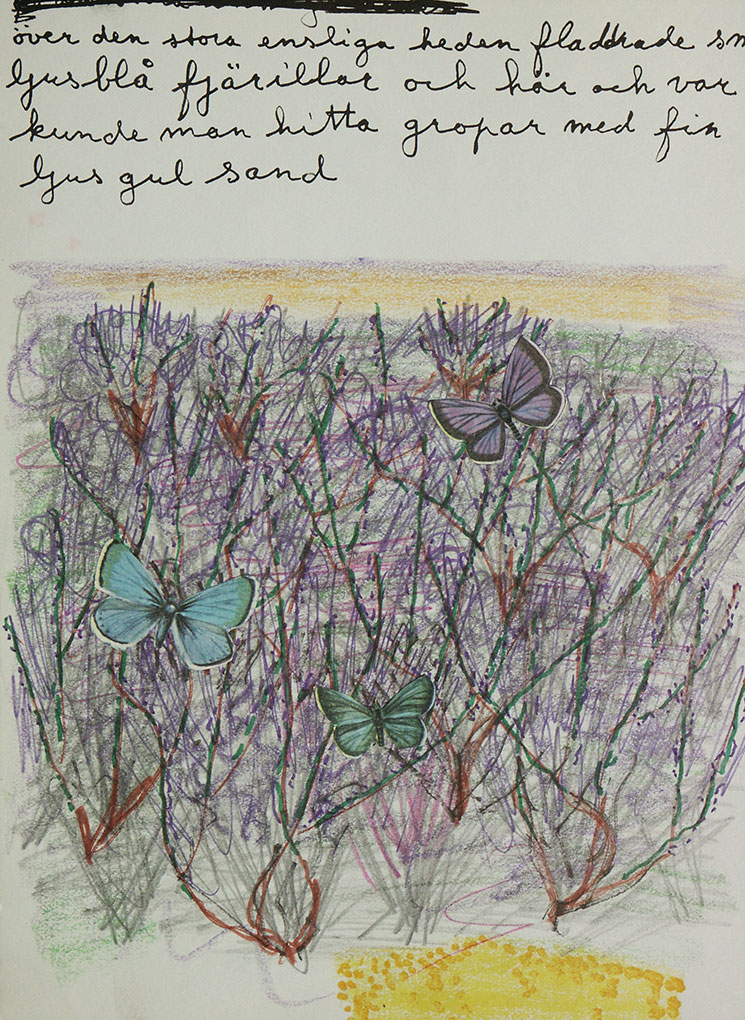 över den stora ensliga heden fladdrade sm
ljusblå fjärillar och här och var
kunde man hitta gropar med fin
ljus gul sand